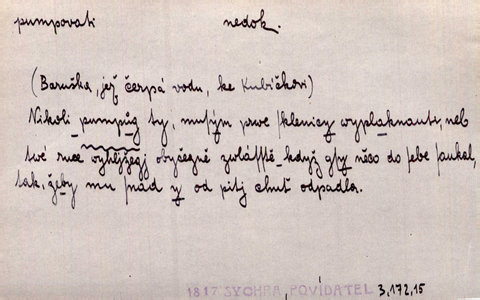 pumpovati nedok.
(Baruška, jež čerpá vodu, ke Kubíčkovi)
Nikoli pumpůg ty, musým prwé sklenicy wyplaknauti, neb
twé ruce wyhljžegj obyčegně zwlásstě když gsy něco do sebe saukal,
tak, žeby mu snád y od pitj chuť odpadla.
1817 SYCHRA, POVÍDATEL 3,172,15